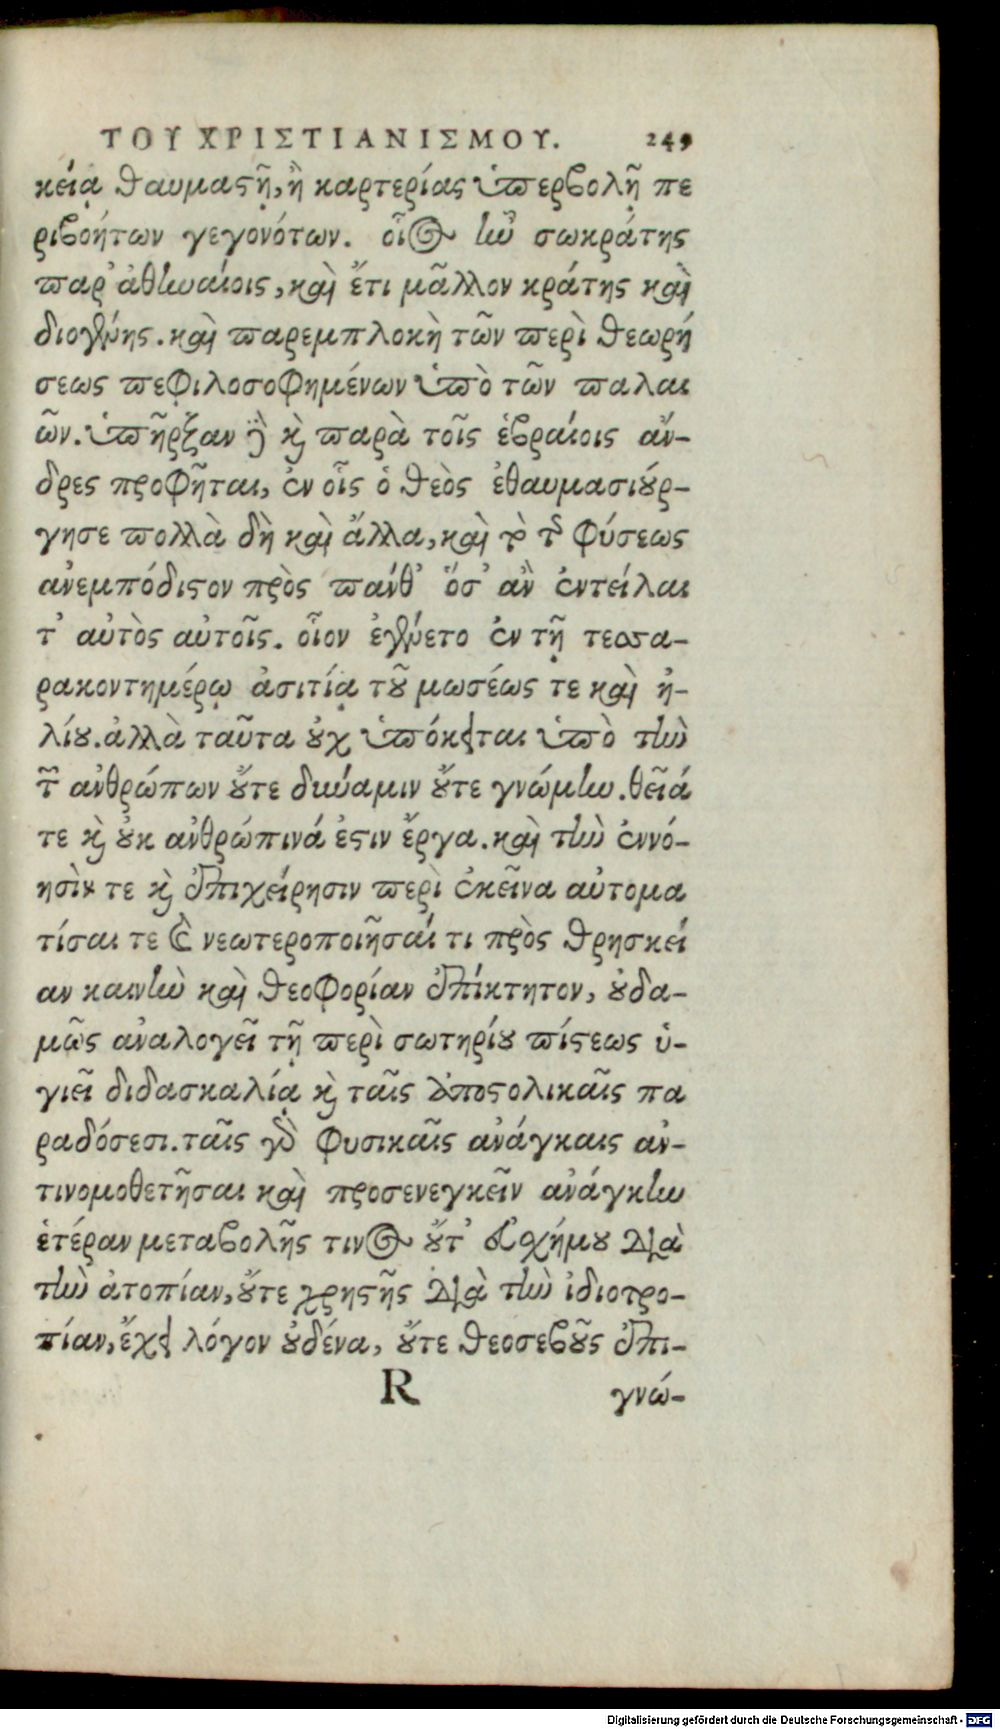 ΤΟΥ ΧΡΙΣΤΙΑΝΙΣΜΟΥ. 249
κείᾳ θαυμαϛῇ, ἢ καρτερίας ὑπερβολῇ πε
ριβοήτων γεγονότων. οἷος ἦν σωκράτης
παρ' ἀθηναίοις, καὶ ἔτι μᾶλλον κράτης καὶ
διογένης. καὶ παρεμπλοκὴ τῶν περὶ θεωρή
σεως πεφιλοσοφημένων ὑπὸ τῶν παλαι
ῶν. ὑπῆρξαν ϳὰρ καὶ παρὰ τοῖς ἑβραίοις ἄν-
δρες προφῆται, ἐν οἷς ὁ θεὸς ἐθαυμασιούρ-
γησε πολλὰ δὴ καὶ ἄλλα, καὶ τὸ τῆς φύσεως
ἀνεμπόδιϛον πρὸς πάνθ' ὅσ' ἂν ἐντείλαι
τ' αὐτὸς αὐτοῖς. οἷον ἐγένετο ἐν τῇ τεσσα-
ρακοντημέρῳ ἀσιτίᾳ τοῦ μωσέως τε καὶ ἠ-
λίου. ἀλλὰ ταῦτα οὐχ ὑπόκειται ὑπὸ τὴν
τῶν ἀνθρώπων οὔτε δύναμιν οὔτε γνώμην. θεῖά
τε καὶ οὐκ ἀνθρώπινά ἐϛιν ἔργα. καὶ τὴν ἐννό-
ησίν τε καὶ ἐπιχείρησιν περὶ ἐκεῖνα αὐτομα
τίσαι τε καὶ νεωτεροποιῆσαί τι πρὸς θρησκεί
αν καινὴν καὶ θεοφορίαν ἐπίκτητον, οὐδα-
μῶς ἀναλογεῖ τῇ περὶ σωτηρίου πίϛεως ὑ-
γιεῖ διδασκαλίᾳ καὶ ταῖς ἀποϛολικαῖς πα
ραδόσεσι. ταῖς γὰρ φυσικαῖς ἀνάγκαις ἀν-
τινομοθετῆσαι καὶ προσενεγκεῖν ἀνάγκην
ἑτέραν μεταβολῆς τινος οὔτ' εὐσχήμου διὰ
τὴν ἀτοπίαν, οὔτε χρηϛῆς διὰ τὴν ἰδιοτρο-
πίαν, ἔχει λόγον οὐδένα, οὔτε θεοσεβοῦς ἐπι-
R γνώ-
Digitalisierung gefördert durch die Deutsche Forschungsgemeinschaft - DFG